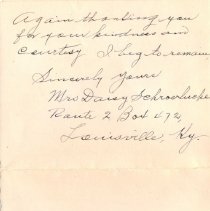 Again thanking you
for your kindness and
courtesy I beg to remain
Sincerely Yours
Mrs Daisy
Route 2 Box 472
Louisville, Ky.